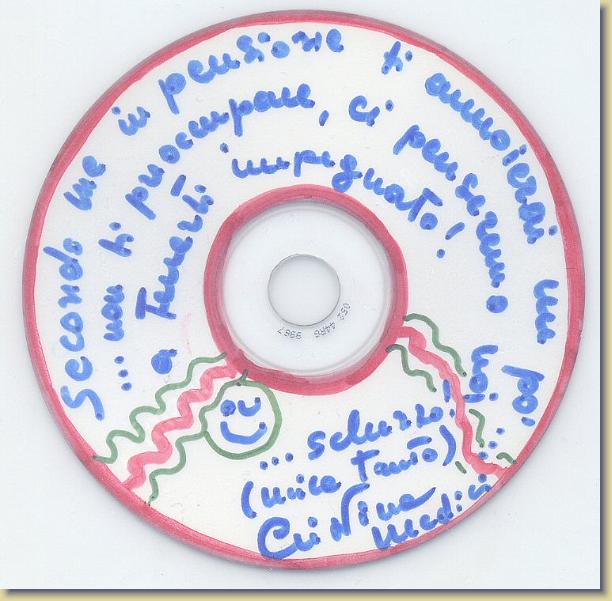 Secondo me in pensione ti annoierai un po'
... non ti preoccupare, ci penseremo noi...
a Tenerti impegnato!
... scherzo!
(mica tanto)
Cristina
Medici